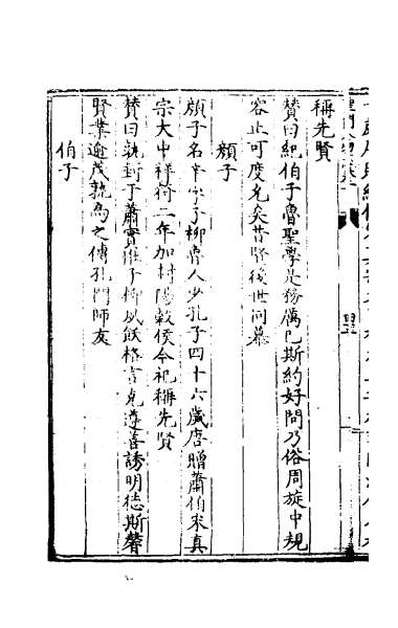 稱先賢
賛曰紀伯子魯聖學是務厲已斯約好問乃俗周旋中規
容止可度允矣昔賢後世同慕
顏子
顏子名辛字子柳魯人少孔子四十六歲唐贈蕭伯宋真
宗大中祥符二年加封陽穀侯今祀稱先賢
賛曰執封于蕭實惟子柳夙飫格言克遵善誘明徳斯馨
賢業逾茂孰為之傳孔門師友
伯子